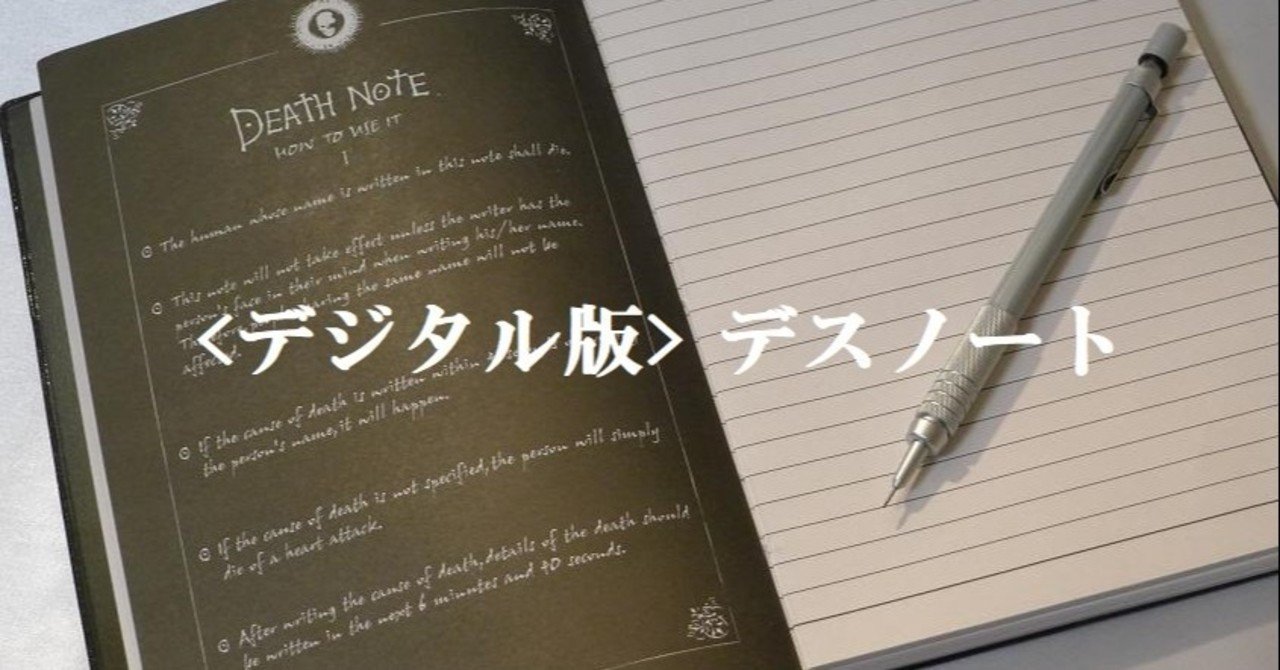 DEATH NOTE
HOW TO USE IT
I
The human whose name is written in this note shall die.
This note will not take effect unless the writer has the
person's face in their mind when writing his/her name.
the same name will not be
affected.
<デジタル版> デスノート
If the cause of death is written within
the person's name, it will happen.
If the cause of death is not specified, the person will simply
die of a heart attack.
After writing the cause of death, details of the death should
be written in the next 6 minutes and 40 seconds.